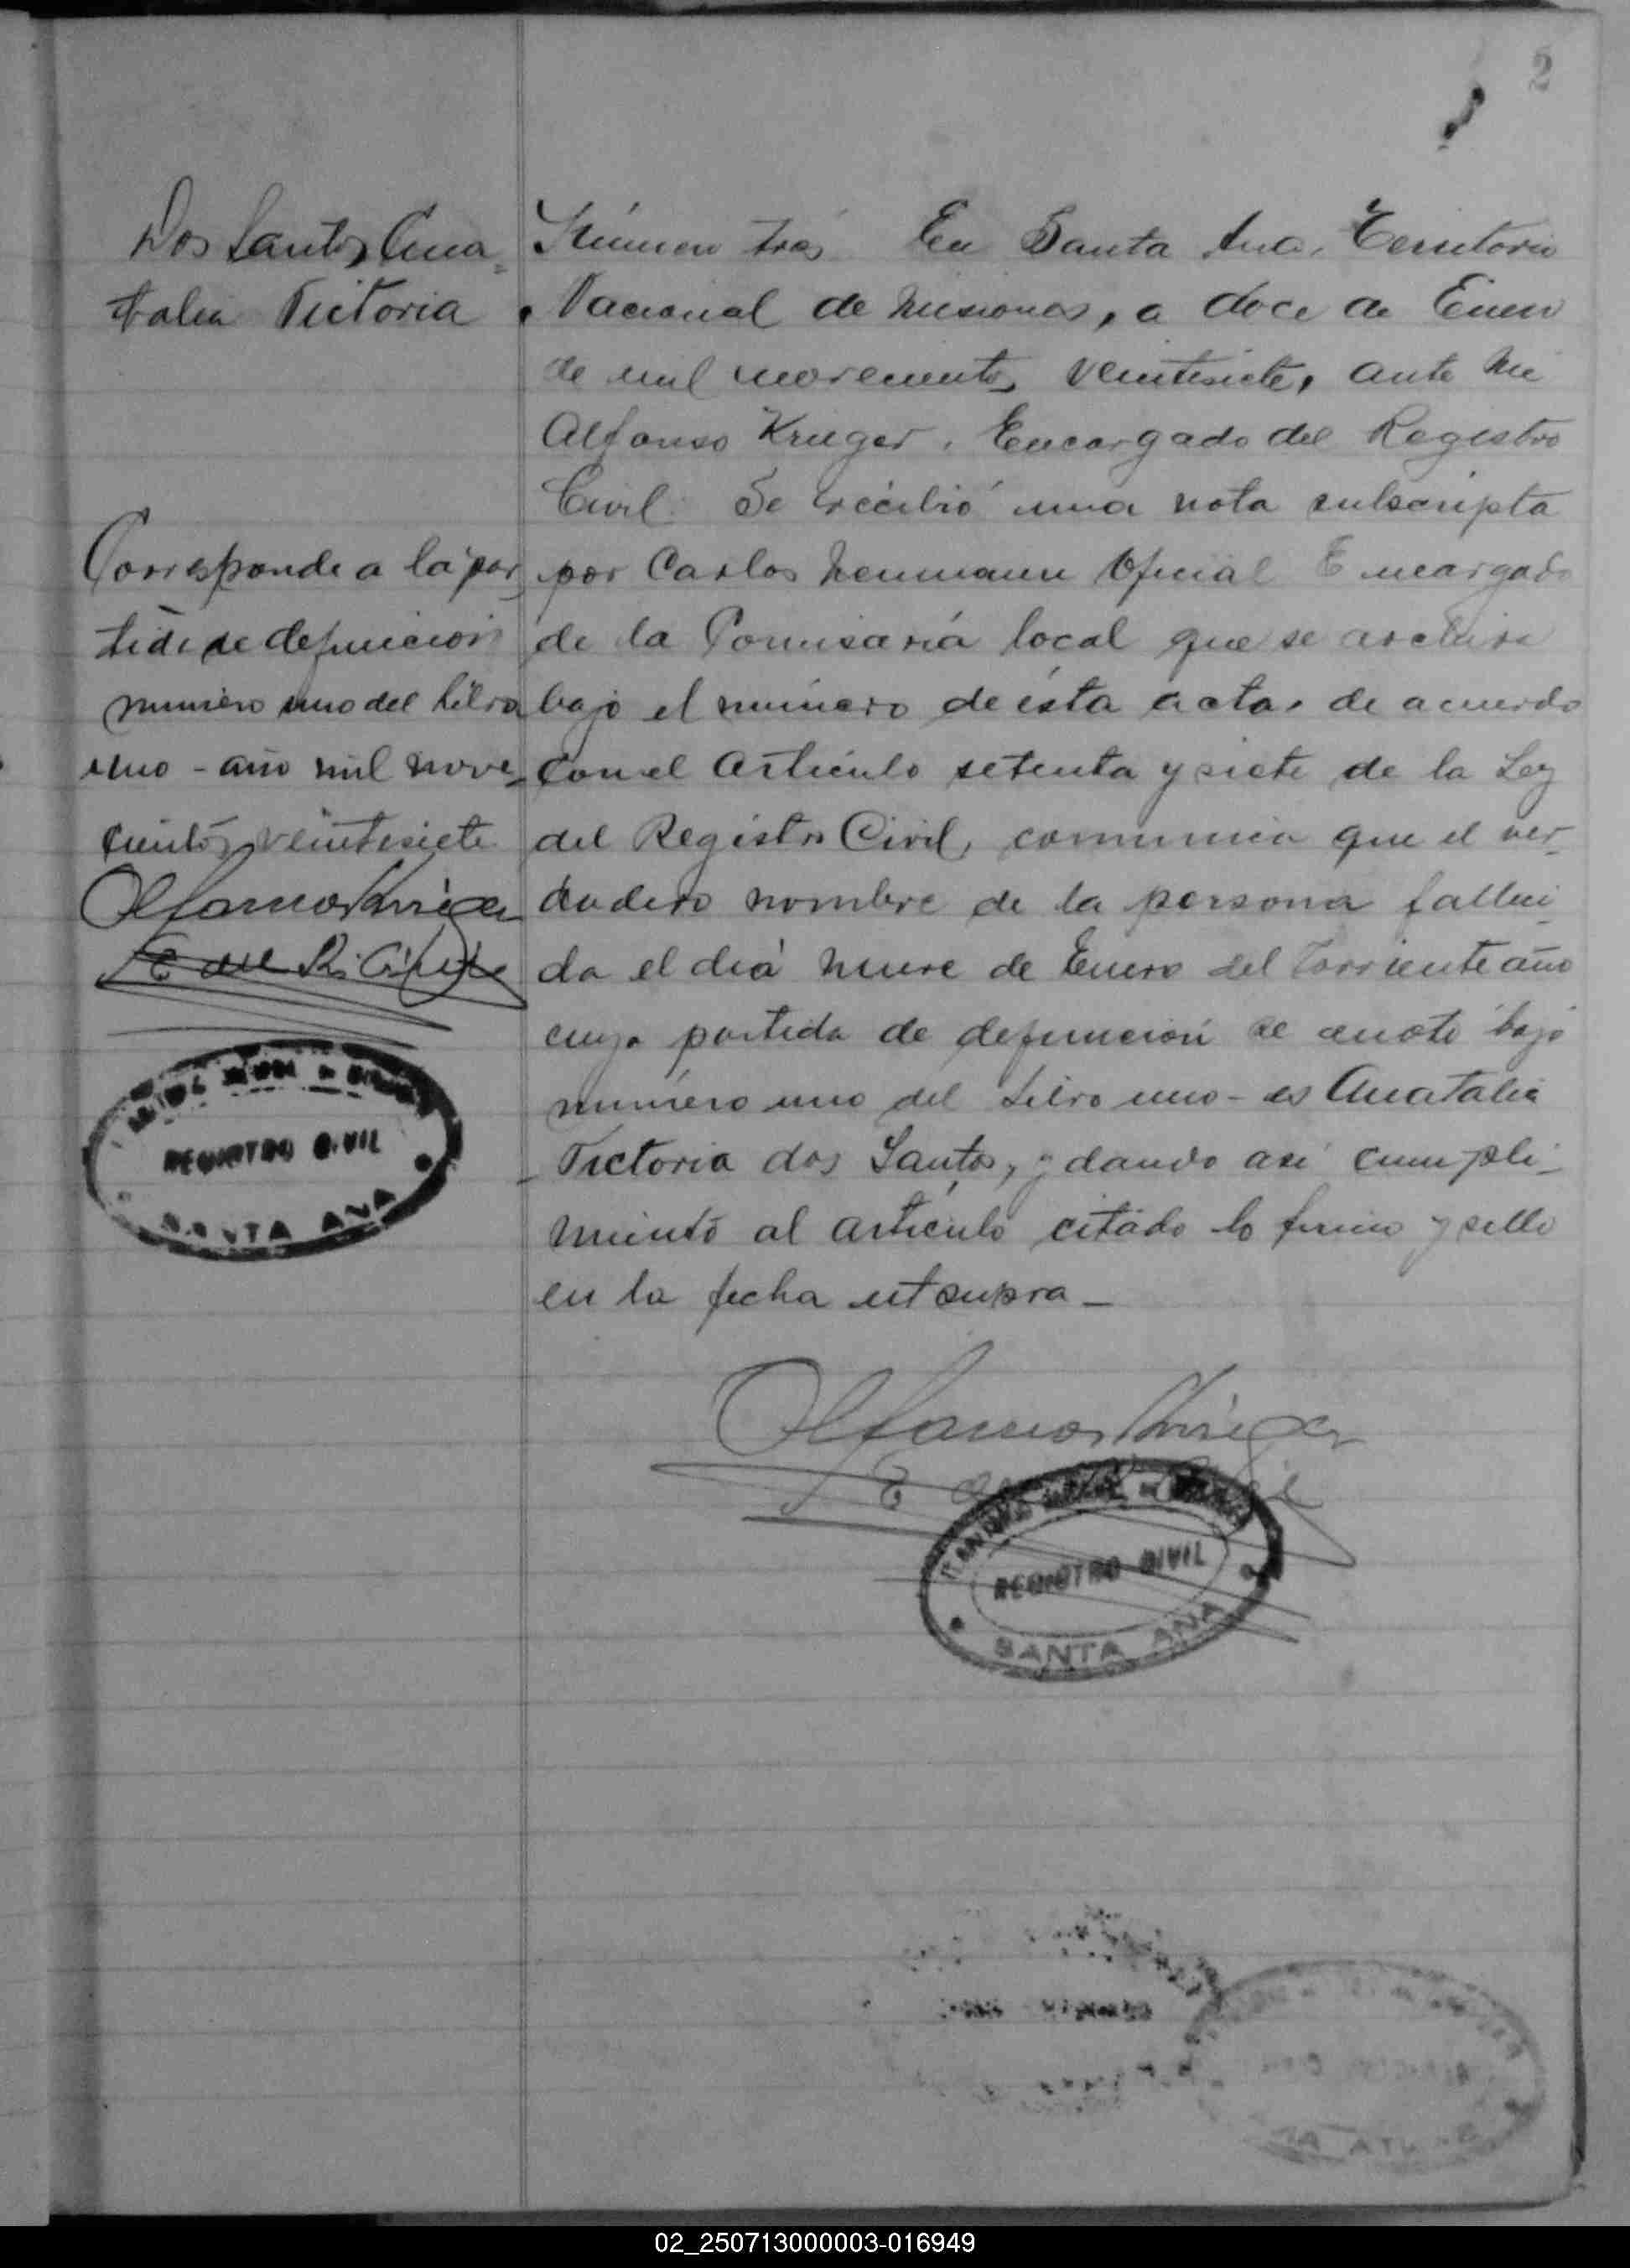 2
Dos Santos Ana=
talia Victoria
Número tres En Santa Ana, Territorio
Nacional de Misiones, a doce de Enero
de mil novecientos veintisiete, ante mi
Alfonso Kruger, Encargado del Registro
Civil: Se recibió una nota subscripta
por Carlos Neumann Oficial Encargado
de la Comisaría local que se archiva
bajo el número de ésta acta, de acuerdo
con el Artículo setenta y siete de la Ley
del Registro Civil, comunica que el ver_
dadero nombre de la persona falleci_
da el día nueve de Enero del Corriente año
cuya partida de defunción se anotó bajo
número uno del Libro uno - es Anatalia
Victoria dos Santos, y dando así cumpli_
miento al artículo citado lo firmo y sello
en la fecha ut supra _
Corresponde a la par_
tida de defunción
número uno del libro
uno - año mil nove_
cientos veintisiete
Alfonso Krüger
E del R. Civil
REGISTRO CIVIL
SANTA ANA
Alfonso Krüger
REGISTRO CIVIL
SANTA ANA
02_250713000003-016949